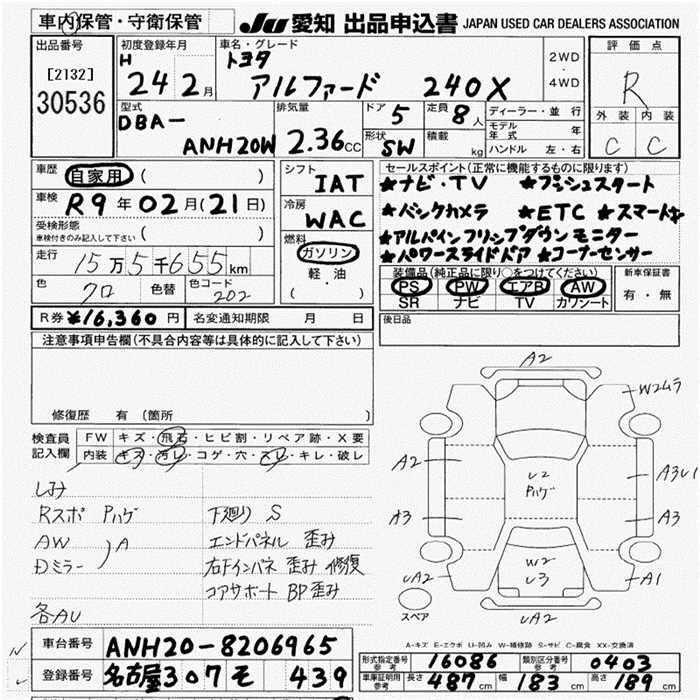 車内保管・守衛保管
JU 愛知 出品申込書 JAPAN USED CAR DEALERS ASSOCIATION
出品番号
[2132]
30536
初度登録年月
H
24 2月
車名・グレード
トヨタ
アルファード 240X
2WD
・
4WD
評価点
R
外装 内装
C C
型式
DBA-
ANH20W
排気量
2.36CC
ドア 5
定員 8人
形状 SW
積載 kg
ディーラー・並行
モデル年式 年
ハンドル 左・右
車歴
自家用 ( )
車検
R9年02月(21日)
受検形態
車検付きのみ記入して下さい ( )
走行
15万5千655km
色
クロ
色替
色コード
202
シフト
IAT
冷房
WAC
燃料
ガソリン
軽・油
( )
セールスポイント(正常に機能するものに限ります)
★ナビ・TV ★プッシュスタート
★バックカメラ ★ETC ★スマートキ
★アルパインフリップダウンモニター
★パワースライドドア ★コーナーセンサー
装備品(純正品に限り○をつけてください)
PS PW エアB AW
SR ナビ TV カワシート
新車保証書
有・無
R券 ¥16,360円 名変通知期限 月 日
後日品
注意事項申告欄(不具合内容等は具体的に記入して下さい)
修復歴 有(箇所 )
検査員
記入欄
FW キズ・飛石・ヒビ割・リペア跡・X要
内装 キズ・汚レ・コゲ・穴・スレ・キレ・破レ
しみ
Rスポ Pハゲ
AW
Dミラー ) A
各AU
下廻り S
エンドパネル 歪み
右Fインパネ 歪み 修復
コアサポート BP歪み
A2
W2ムラ
A2
A3
U2
Pハゲ
A3U1
A3
W2
U3
UA2
A1
UA2
スペア
A-キズ E-エクボ U-凹み W-補修跡 S-サビ C-腐食 XX-交換済
車台番号 ANH20-8206965
登録番号 名古屋307モ 439
形式指定番号 参考 16086
類別区分番号 参考 0403
車庫証明用 参考 長さ 487cm 幅 183cm 高さ 189cm